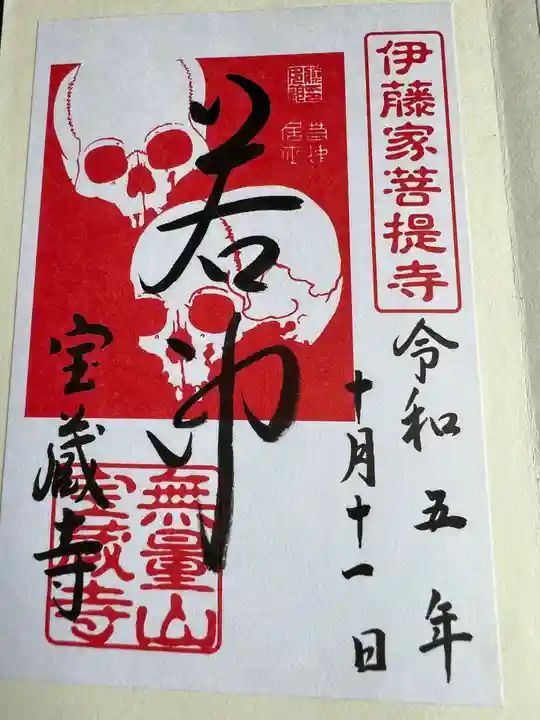 伊藤家菩提寺
令和五年
十月十一日
若冲
宝蔵寺
無量山
宝蔵寺